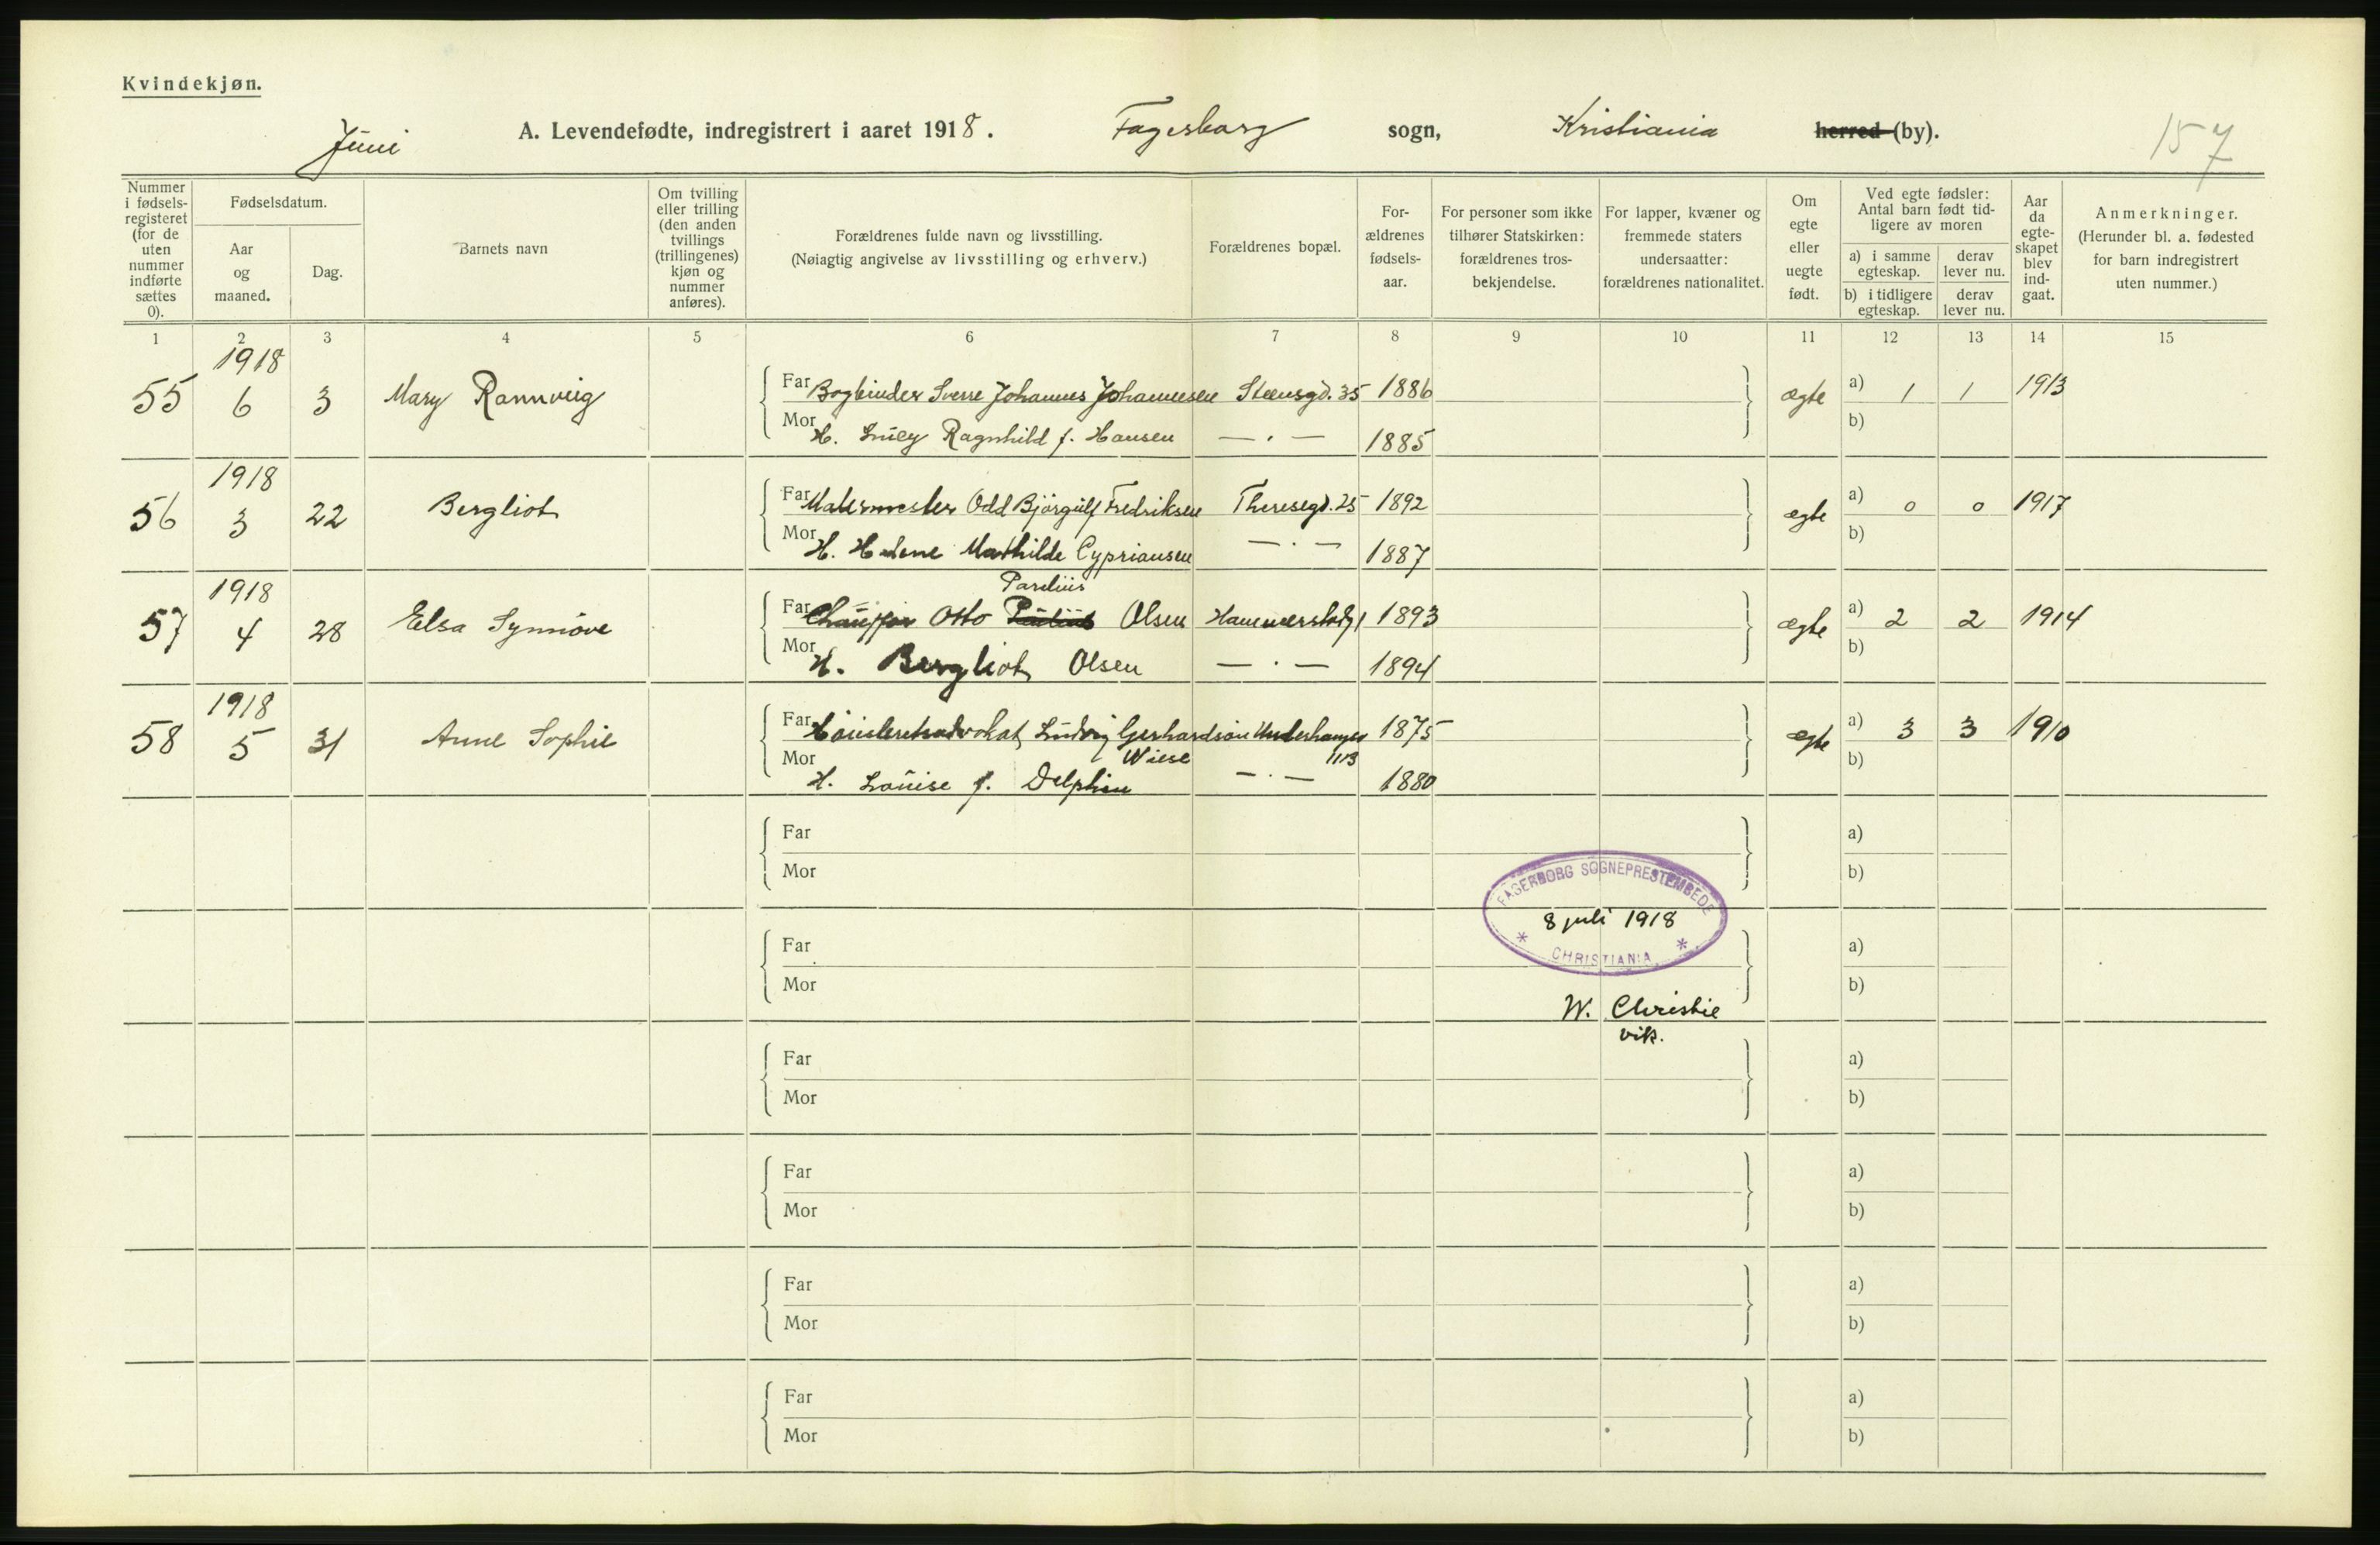 Kvindekjøn.
Juni A. Levendefødte, indregistrert i aaret 1918. Fagerborg sogn, Kristiania herred (by). 157
Nummer i fødsels-registeret (for de uten nummer indførte sættes 0).
Fødselsdatum.
Aar og maaned.
Dag.
Barnets navn
Om tvilling eller trilling (den anden tvillings (trillingenes) kjøn og nummer anføres).
Forældrenes fulde navn og livsstilling.
(Nøiagtig angivelse av livsstilling og erhverv.)
Forældrenes bopæl.
For-ældrenes fødsels-aar.
For personer som ikke tilhører Statskirken: forældrenes tros-bekjendelse.
For lapper, kvæner og fremmede staters undersaatter: forældrenes nationalitet.
Om egte eller uegte født.
Ved egte fødsler: Antal barn født tid-ligere av moren
a) i samme egteskap.
derav lever nu.
b) i tidligere egteskap.
derav lever nu.
Aar da egte-skapet blev ind-gaat.
Anmerkninger.
(Herunder bl. a. fødested for barn indregistrert uten nummer.)
1 2 3 4 5 6 7 8 9 10 11 12 13 14 15
1918
55 6 3 Mary Rannveig Far Bogbinder Sverre Johannes Johannesen Steensgd. 35 1886 ægte a) 1 1 1913
Mor H. Lucy Ragnhild f. Hansen — . — 1885 b)
1918
56 3 22 Bergliot Far Malermester Odd Bjørgulf Fredriksen Theresegd. 25 1892 egte a) 0 0 1917
Mor H. Helene Mathilde Cypriansen — . — 1887 b)
1918 Parelius
57 4 28 Elsa Synnöve Far Chauffør Otto Olsen 1893 ægte a) 2 2 1914
Mor H. Bergliot Olsen — . — 1894 b)
1918
58 5 31 Anne Sophie Far Høiesteretsadvokat Ludvig Gerhardson Underhaugsv 1875 egte a) 3 3 1910
Wiese
Mor H. Louise f. Delphin — . — 1880 b)
Far a)
Mor b)
FAGERBORG SOGNEPRESTEMBEDE
8 juli 1918
* CHRISTIANIA *
Far a)
Mor b)
W. Christie
vik.
Far a)
Mor b)
Far a)
Mor b)
Far a)
Mor b)
Far a)
Mor b)